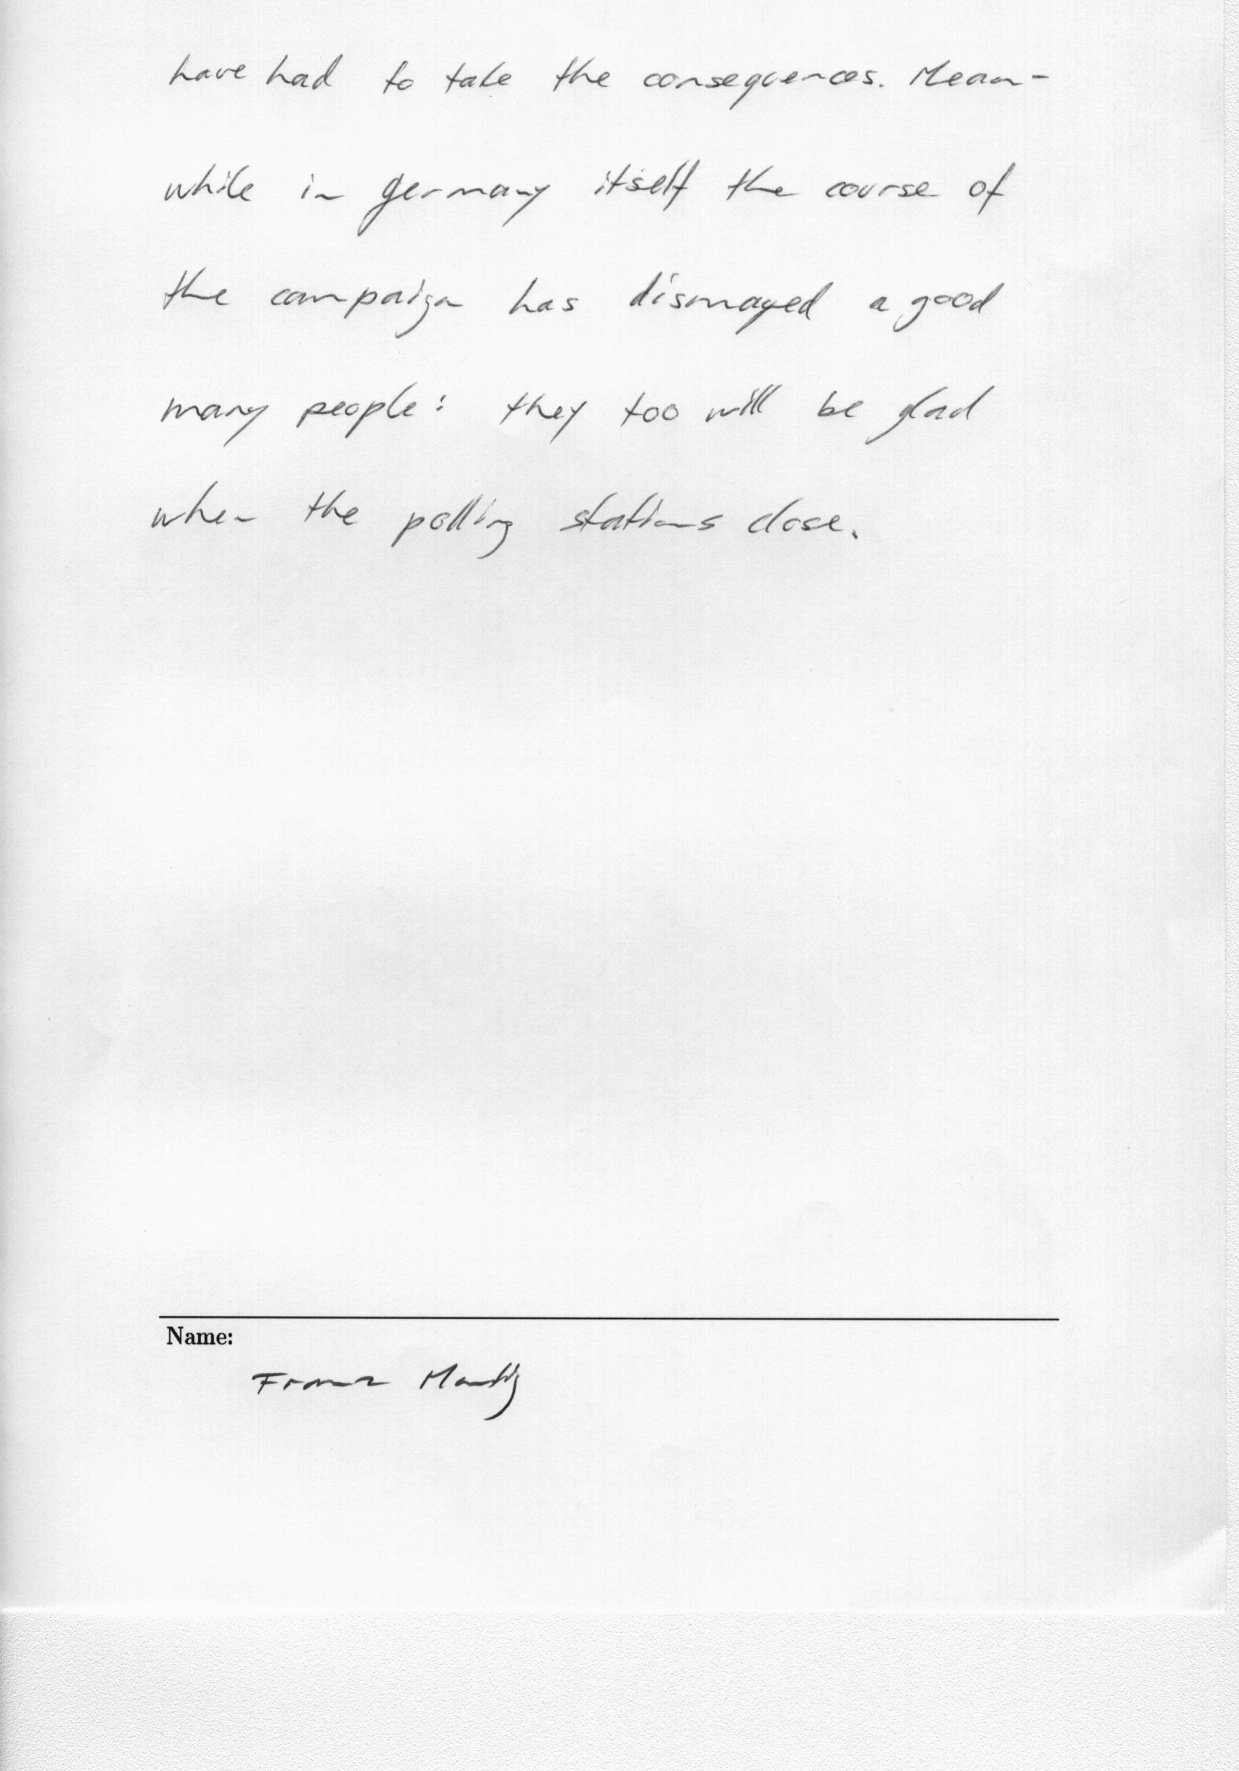 have had to take the consequences. Mean-
while in Germany itself the course of
the campaign has dismayed a good
many people: they too will be glad
when the polling stations close.
Name:
Franz